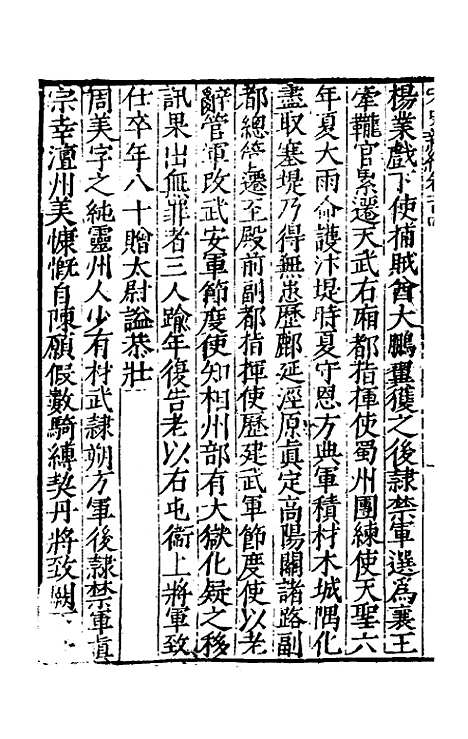 楊業戲下使捕賊酋大鵬翼獲之後隷禁軍選爲襄王
牽鞚官累遷天武右廂都指揮使蜀州團練使天聖六
年夏大雨命護汴堤時夏守恩方典軍積材木城隅化
盡取塞堤乃得無患歷鄜延涇原眞定高陽關諸路副
都總管遷至殿前副都指揮使歷建武軍節度使以老
辭管軍改武安軍節度使知相州部有大獄化疑之移
訊果出無罪者三人踰年復告老以右屯衞上將軍致
仕卒年八十贈太尉謚恭壯
周美字之純靈州人少有材武隷朔方軍後隷禁軍眞
宗幸澶州美慷慨自陳願假數騎縛契丹將致闕下